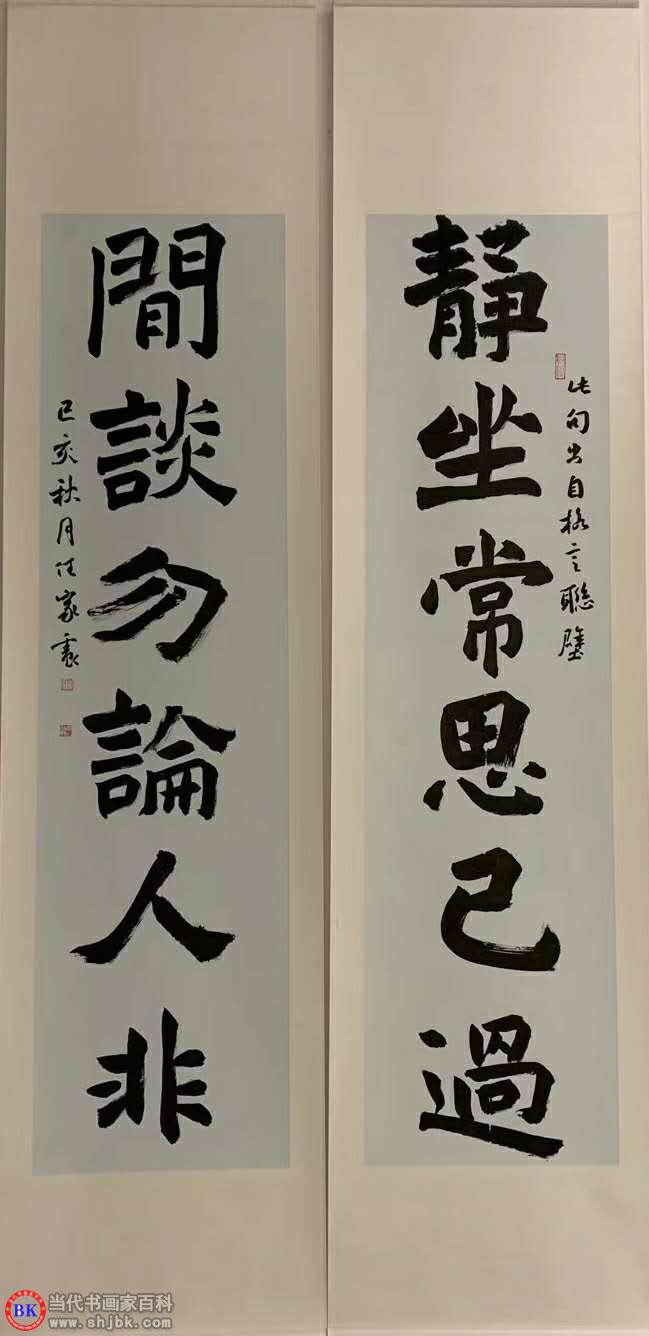 静坐常思己過
此句出自格言聯璧
間談勿論人非
己亥秋月任家
BK 当代书画家百科
www.shjbk.com